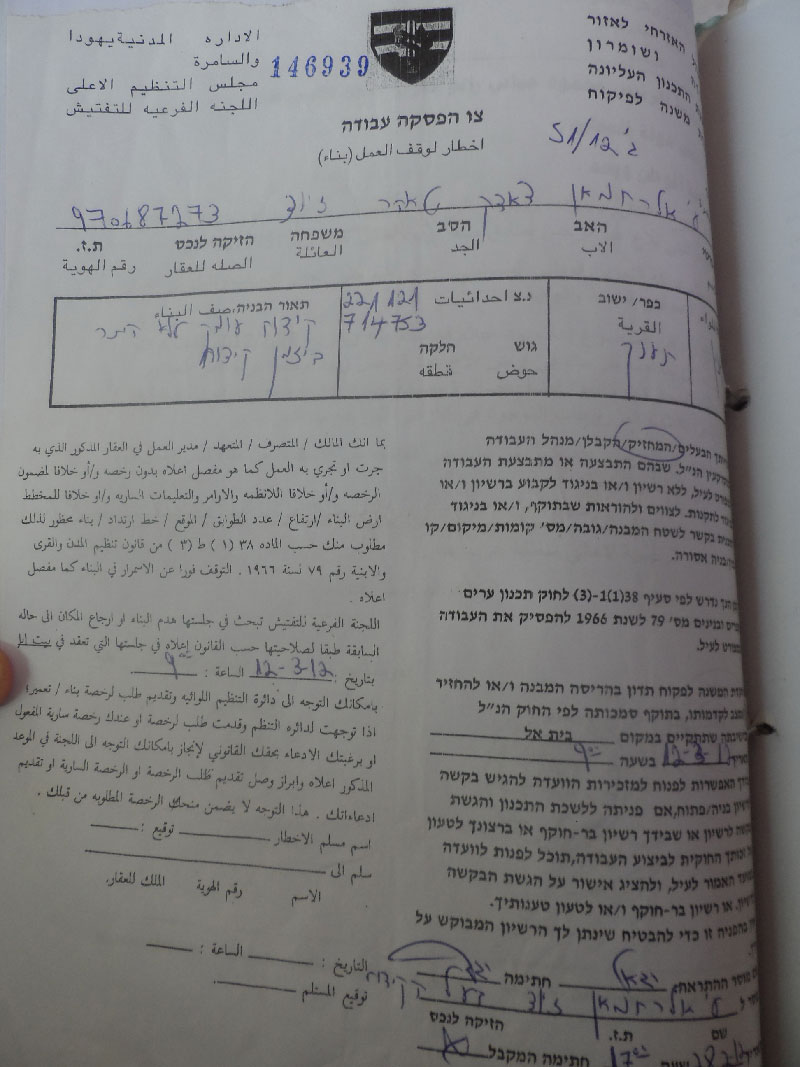 האזרחי לאזור
ושומרון
התכנון העליונה
משנה לפיקוח
الاداره المدنية يهودا
والسامرة
مجلس التنظيم الاعلى
اللجنه الفرعيه للتفتيش
146939
צו הפסקה עבודה
اخطار لوقف العمل (بناء)
ג' 51/12
970687273
האב הסב משפחה הזיקה לנכס ת.ז.
الاب الجد العائلة الصله للعقار رقم الهوية
כפר/ ישוב
القرية
תענך
נ.צ احداثيات 221/121
714753
גוש חלקה
حوض قطقه
תאור הבניה,صيف البناء
קידוח עומק ללא היתר
קידוח
הבעלים/המחזיק/הקבלן/מנהל העבודה
הנ"ל. שבהם התבצעה או מתבצעת העבודה
לעיל, ללא רשיון ו/או בניגוד לקבוע ברשיון ו/או
לתקנות. לצווים ולהוראות שבתוקף, ו/או בניגוד
בקשר לשטח המבנה/גובה/מס' קומות/מיקום/קו
אסורה.
נדרש לפי סעיף 38(1)1-(3) לחוק תכנון ערים
מס' 79 לשנת 1966 להפסיק את העבודה
לעיל.
המשנה לפקוח תדון בהריסה המבנה ו/או להחזיר
לקדמותו, בתוקף סמכותה לפי החוק הנ"ל
שתתקיים במקום בית אל
בשעה 9
האפשרות לפנות למזכירות הוועדה להגיש בקשה
בניה/פתוח,אם פניתה ללשכת התכנון והגשת
לרשיון או שבידך רשיון בר-תוקף או ברצונך לטעון
החוקית לביצוע העבודה,תוכל לפנות לוועדה
האמור לעיל, ולהציג אישור על הגשת הבקשה
או רשיון בר-תוקף ו/או לטעון טענותיך.
זו כדי להבטיח שינתן לך הרשיון המבוקש על
ההתראה: חתימה
שם ת.ז. הזיקה לנכס
חתימה המקבל
بما انك المالك / المتصرف / المتعهد / مدير العمل في العقار المذكور الذي به
جرت او تجري به العمل كما هو مفصل اعلاه بدون رخصه و/أو خلافا لمضمون
الرخصه و/أو خلافا للانظمه والاوامر والتعليمات الساريه و/او خلافا للمخطط
ارض البناء /ارتفاع / عدد الطوابق / الموقع / خط ارتداد / بناء محظور لذلك
مطلوب منك حسب الماده ٣٨ (١ ) ط (٣ ) من قانون تنظيم المدن والقرى
والابنية رقم ٧٩ لسنة ١٩٦٦ . التوقف فورا عن الاسمرار في البناء كما مفصل
اعلاه .
اللجنة الفرعية للتفتيش تبحث في جلستها هدم البناء او ارجاع المكان الى حاله
السابقة طبقا لصلاحيتها حسب القانون اعلاه في جلستها التي تعقد في بيت ايل
بتاريخ : 12-3-12 الساعة : 9
بامكانك التوجه الى دائرة التنظيم اللوائيه وتقديم طلب لرخصة بناء / تعميرا
اذا توجهت لدائره التنظم وقدمت طلب لرخصة او عندك رخصة سارية المفعول
او برغبتك الادعاء بحقك القانوني لإنجاز بامكانك التوجه الى اللجنة في الموعد
المذكور اعلاه وابراز وصل تقديم طلب الرخصة او الرخصة السارية او تقديم
ادعاءاتك . هذا التوجه لا يضمن منحك الرخصة المطلوبه من قبلك .
اسم مسلم الاخطار توقيع :
سلم الى
الاسم رقم الهوية الملك للعقار.
التاريخ : الساعة :
توقيع المستلم